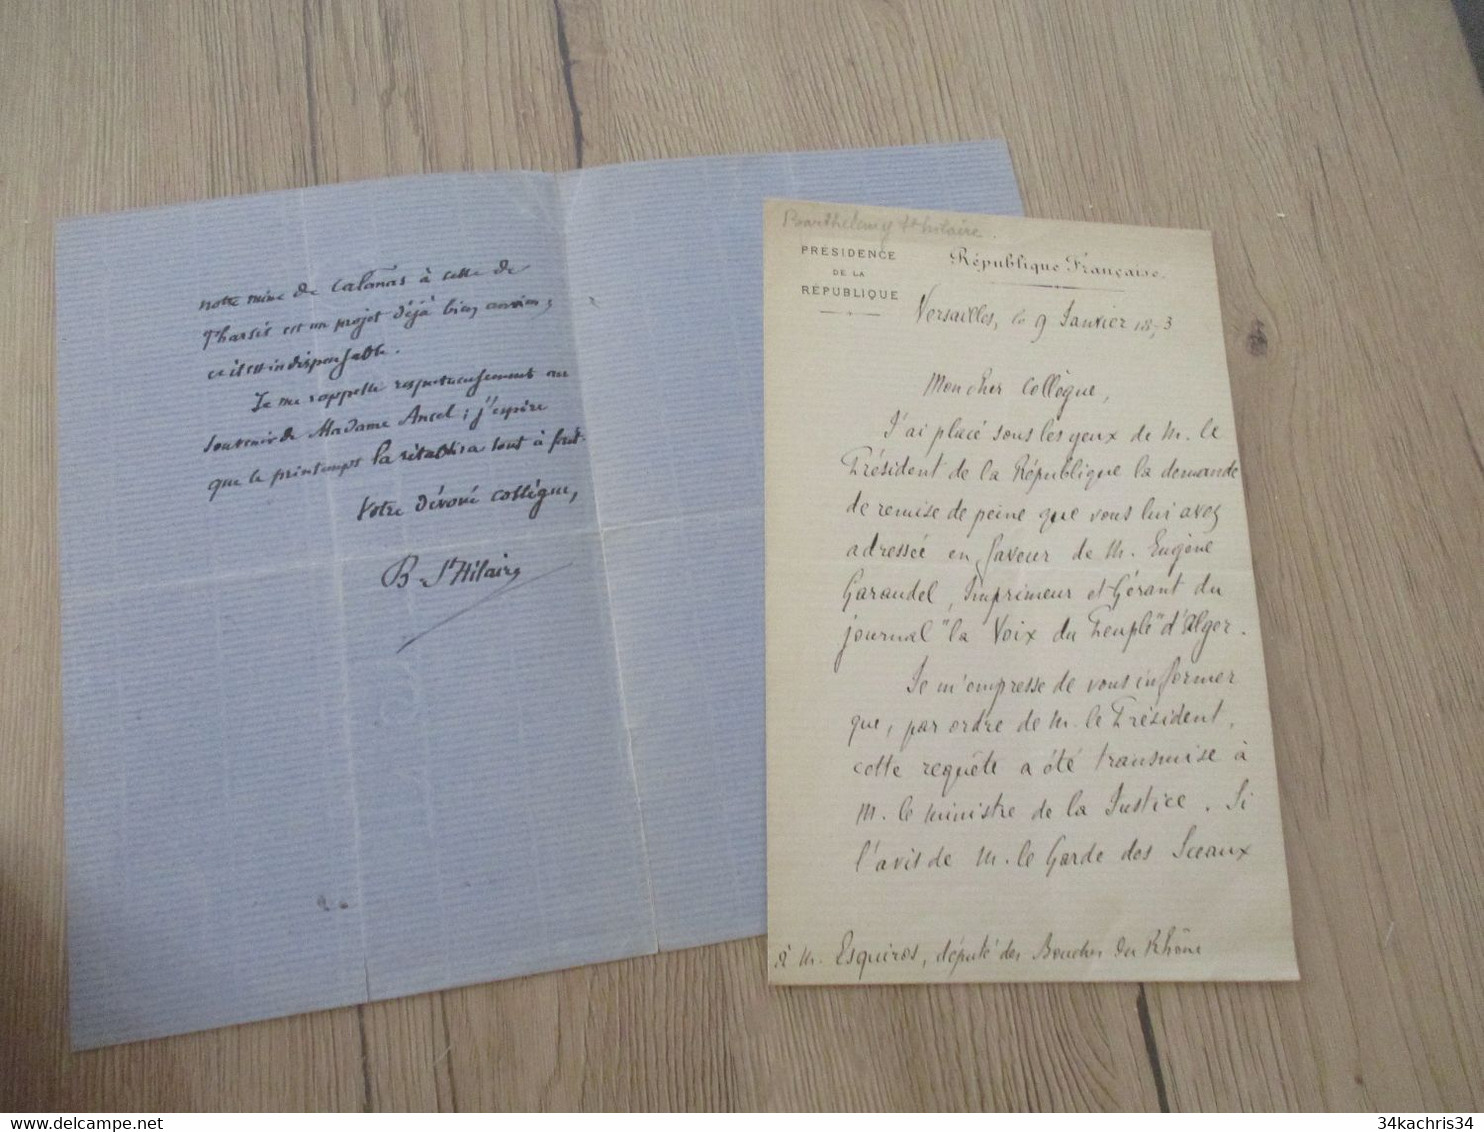 notre mine de Calañas à celle de
Tharsis est un projet déjà bien ancien ;
et il est indispensable.
Je me rappelle respectueusement au
souvenir de Madame Ancel ; j'espère
que le printemps la rétablira tout à fait.
Votre dévoué collègue,
B. St Hilaire
Barthelemy St hilaire.
PRÉSIDENCE
DE LA
RÉPUBLIQUE
République Française
Versailles, le 9 Janvier 1873
Mon cher Collègue,
J'ai placé sous les yeux de M. le
Président de la République la demande
de remise de peine que vous lui avez
adressée en faveur de M. Eugène
Garaudel, Imprimeur et Gérant du
journal "la Voix du Peuple" d'Alger.
Je m'empresse de vous informer
que, par ordre de M. le Président,
cette requête a été transmise à
M. le Ministre de la Justice. Si
l'avis de M. le Garde des Sceaux
à M. Esquiros, député des Bouches du Rhône
delcampe.net
34kachris34